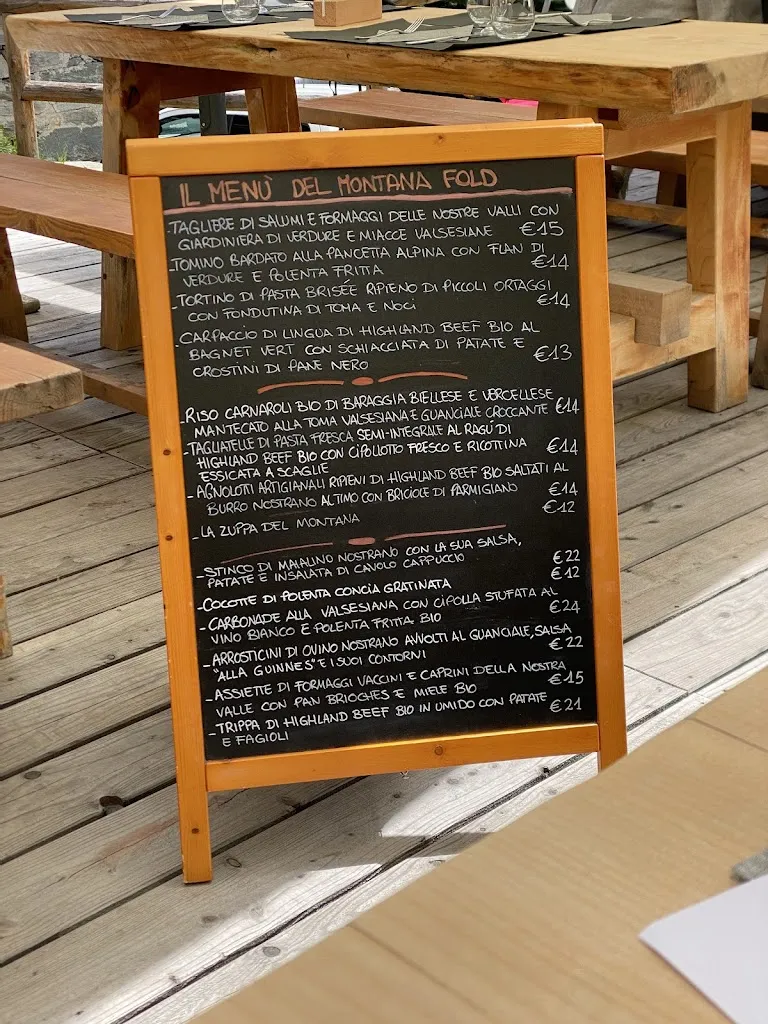 IL MENÙ DEL MONTANA FOLD
-TAGLIERE DI SALUMI E FORMAGGI DELLE NOSTRE VALLI CON
GIARDINIERA DI VERDURE E MIACCE VALSESIANE €15
-TOMINO BARDATO ALLA PANCETTA ALPINA CON FLAN DI
VERDURE E POLENTA FRITTA €14
-TORTINO DI PASTA BRISÉE RIPIENO DI PICCOLI ORTAGGI
CON FONDUTINA DI TOMA E NOCI €14
-CARPACCIO DI LINGUA DI HIGHLAND BEEF BIO AL
BAGNET VERT CON SCHIACCIATA DI PATATE E
CROSTINI DI PANE NERO €13
-RISO CARNAROLI BIO DI BARAGGIA BIELLESE E VERCELLESE
MANTECATO ALLA TOMA VALSESIANA E GUANCIALE CROCCANTE €14
-TAGLIATELLE DI PASTA FRESCA SEMI-INTEGRALE AL RAGÙ DI
HIGHLAND BEEF BIO CON CIPOLLOTTO FRESCO E RICOTTINA
ESSICATA A SCAGLIE €14
-AGNOLOTTI ARTIGIANALI RIPIENI DI HIGHLAND BEEF BIO SALTATI AL
BURRO NOSTRANO AL TIMO CON BRICIOLE DI PARMIGIANO €14
-LA ZUPPA DEL MONTANA €12
-STINCO DI MAIALINO NOSTRANO CON LA SUA SALSA,
PATATE E INSALATA DI CAVOLO CAPPUCCIO €22
-COCOTTE DI POLENTA CONCIA GRATINATA €12
-CARBONADE ALLA VALSESIANA CON CIPOLLA STUFATA AL
VINO BIANCO E POLENTA FRITTA BIO €24
-ARROSTICINI DI OVINO NOSTRANO AVVOLTI AL GUANCIALE, SALSA
"ALLA GUINNES" E I SUOI CONTORNI €22
-ASSIETTE DI FORMAGGI VACCINI E CAPRINI DELLA NOSTRA
VALLE CON PAN BRIOCHES E MIELE BIO €15
-TRIPPA DI HIGHLAND BEEF BIO IN UMIDO CON PATATE
E FAGIOLI €21